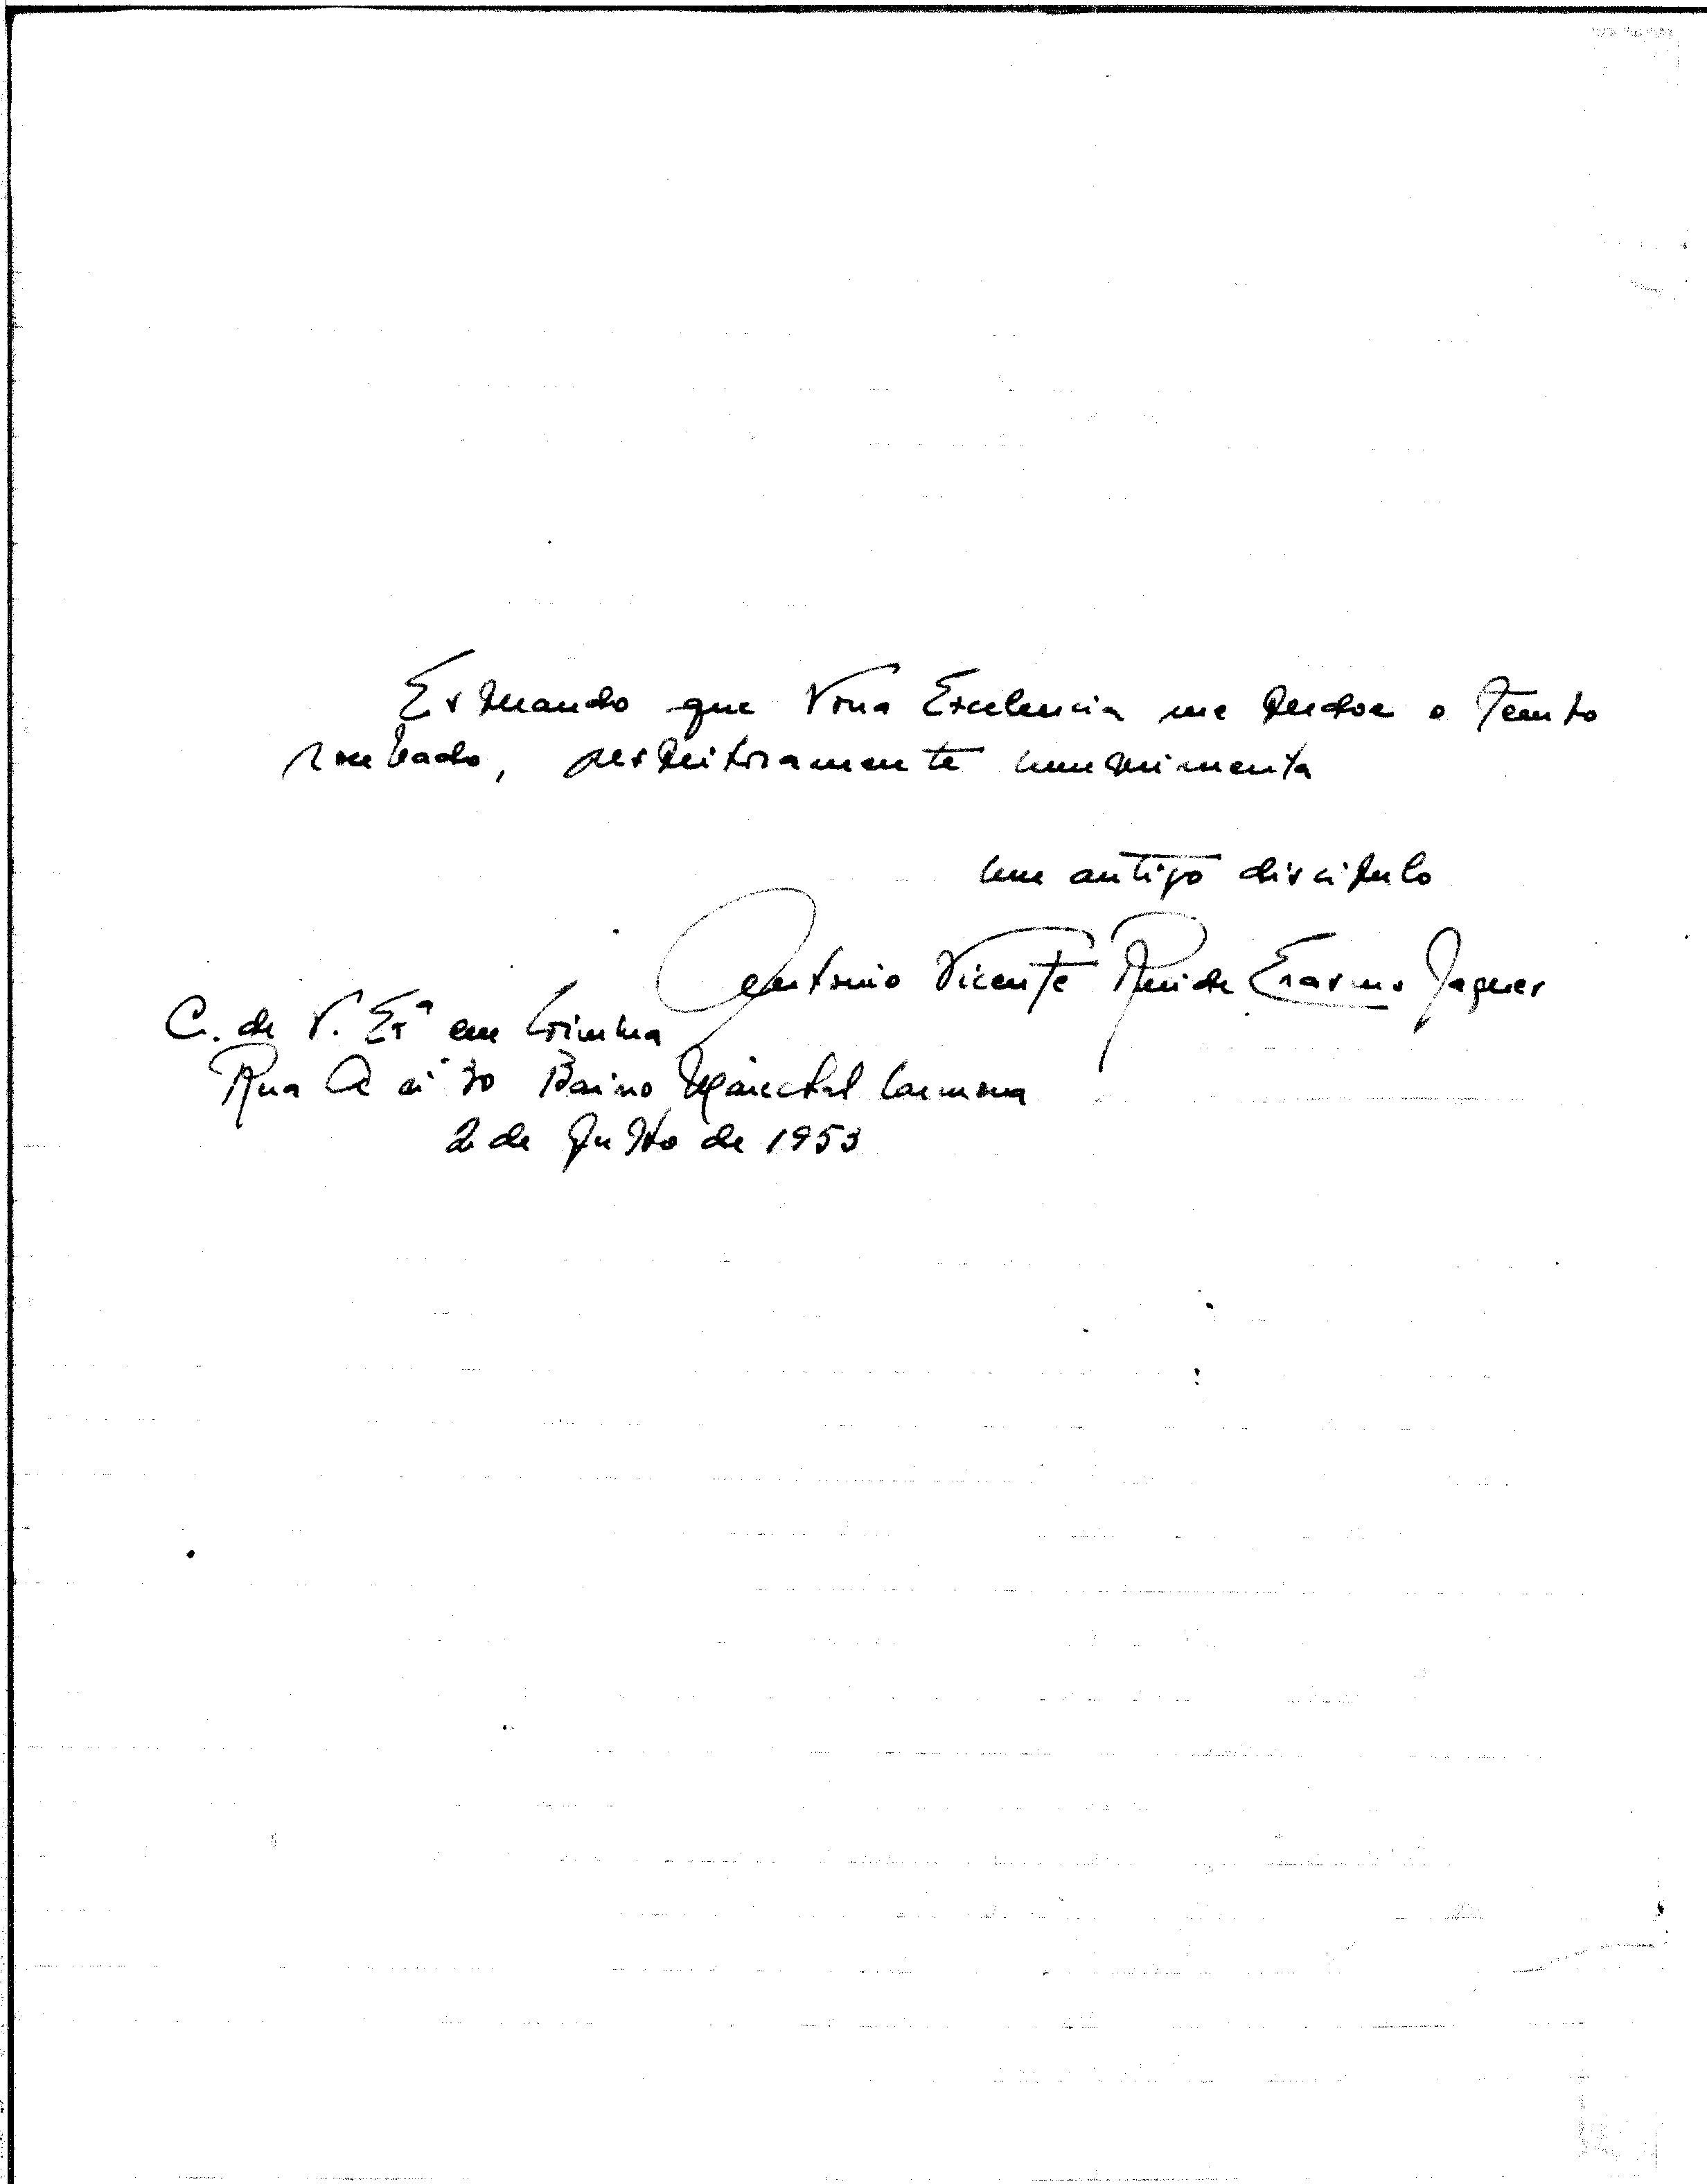 Esperando que Vossa Excelencia me perdoe o tempo
roubado, respeitosamente cumprimenta
um antigo discipulo
Antonio Vicente Erasmo Jaguer
C. de V. Exª em Coimbra
Rua A nº 30 Bairro Marechal Carmona
2 de Julho de 1953